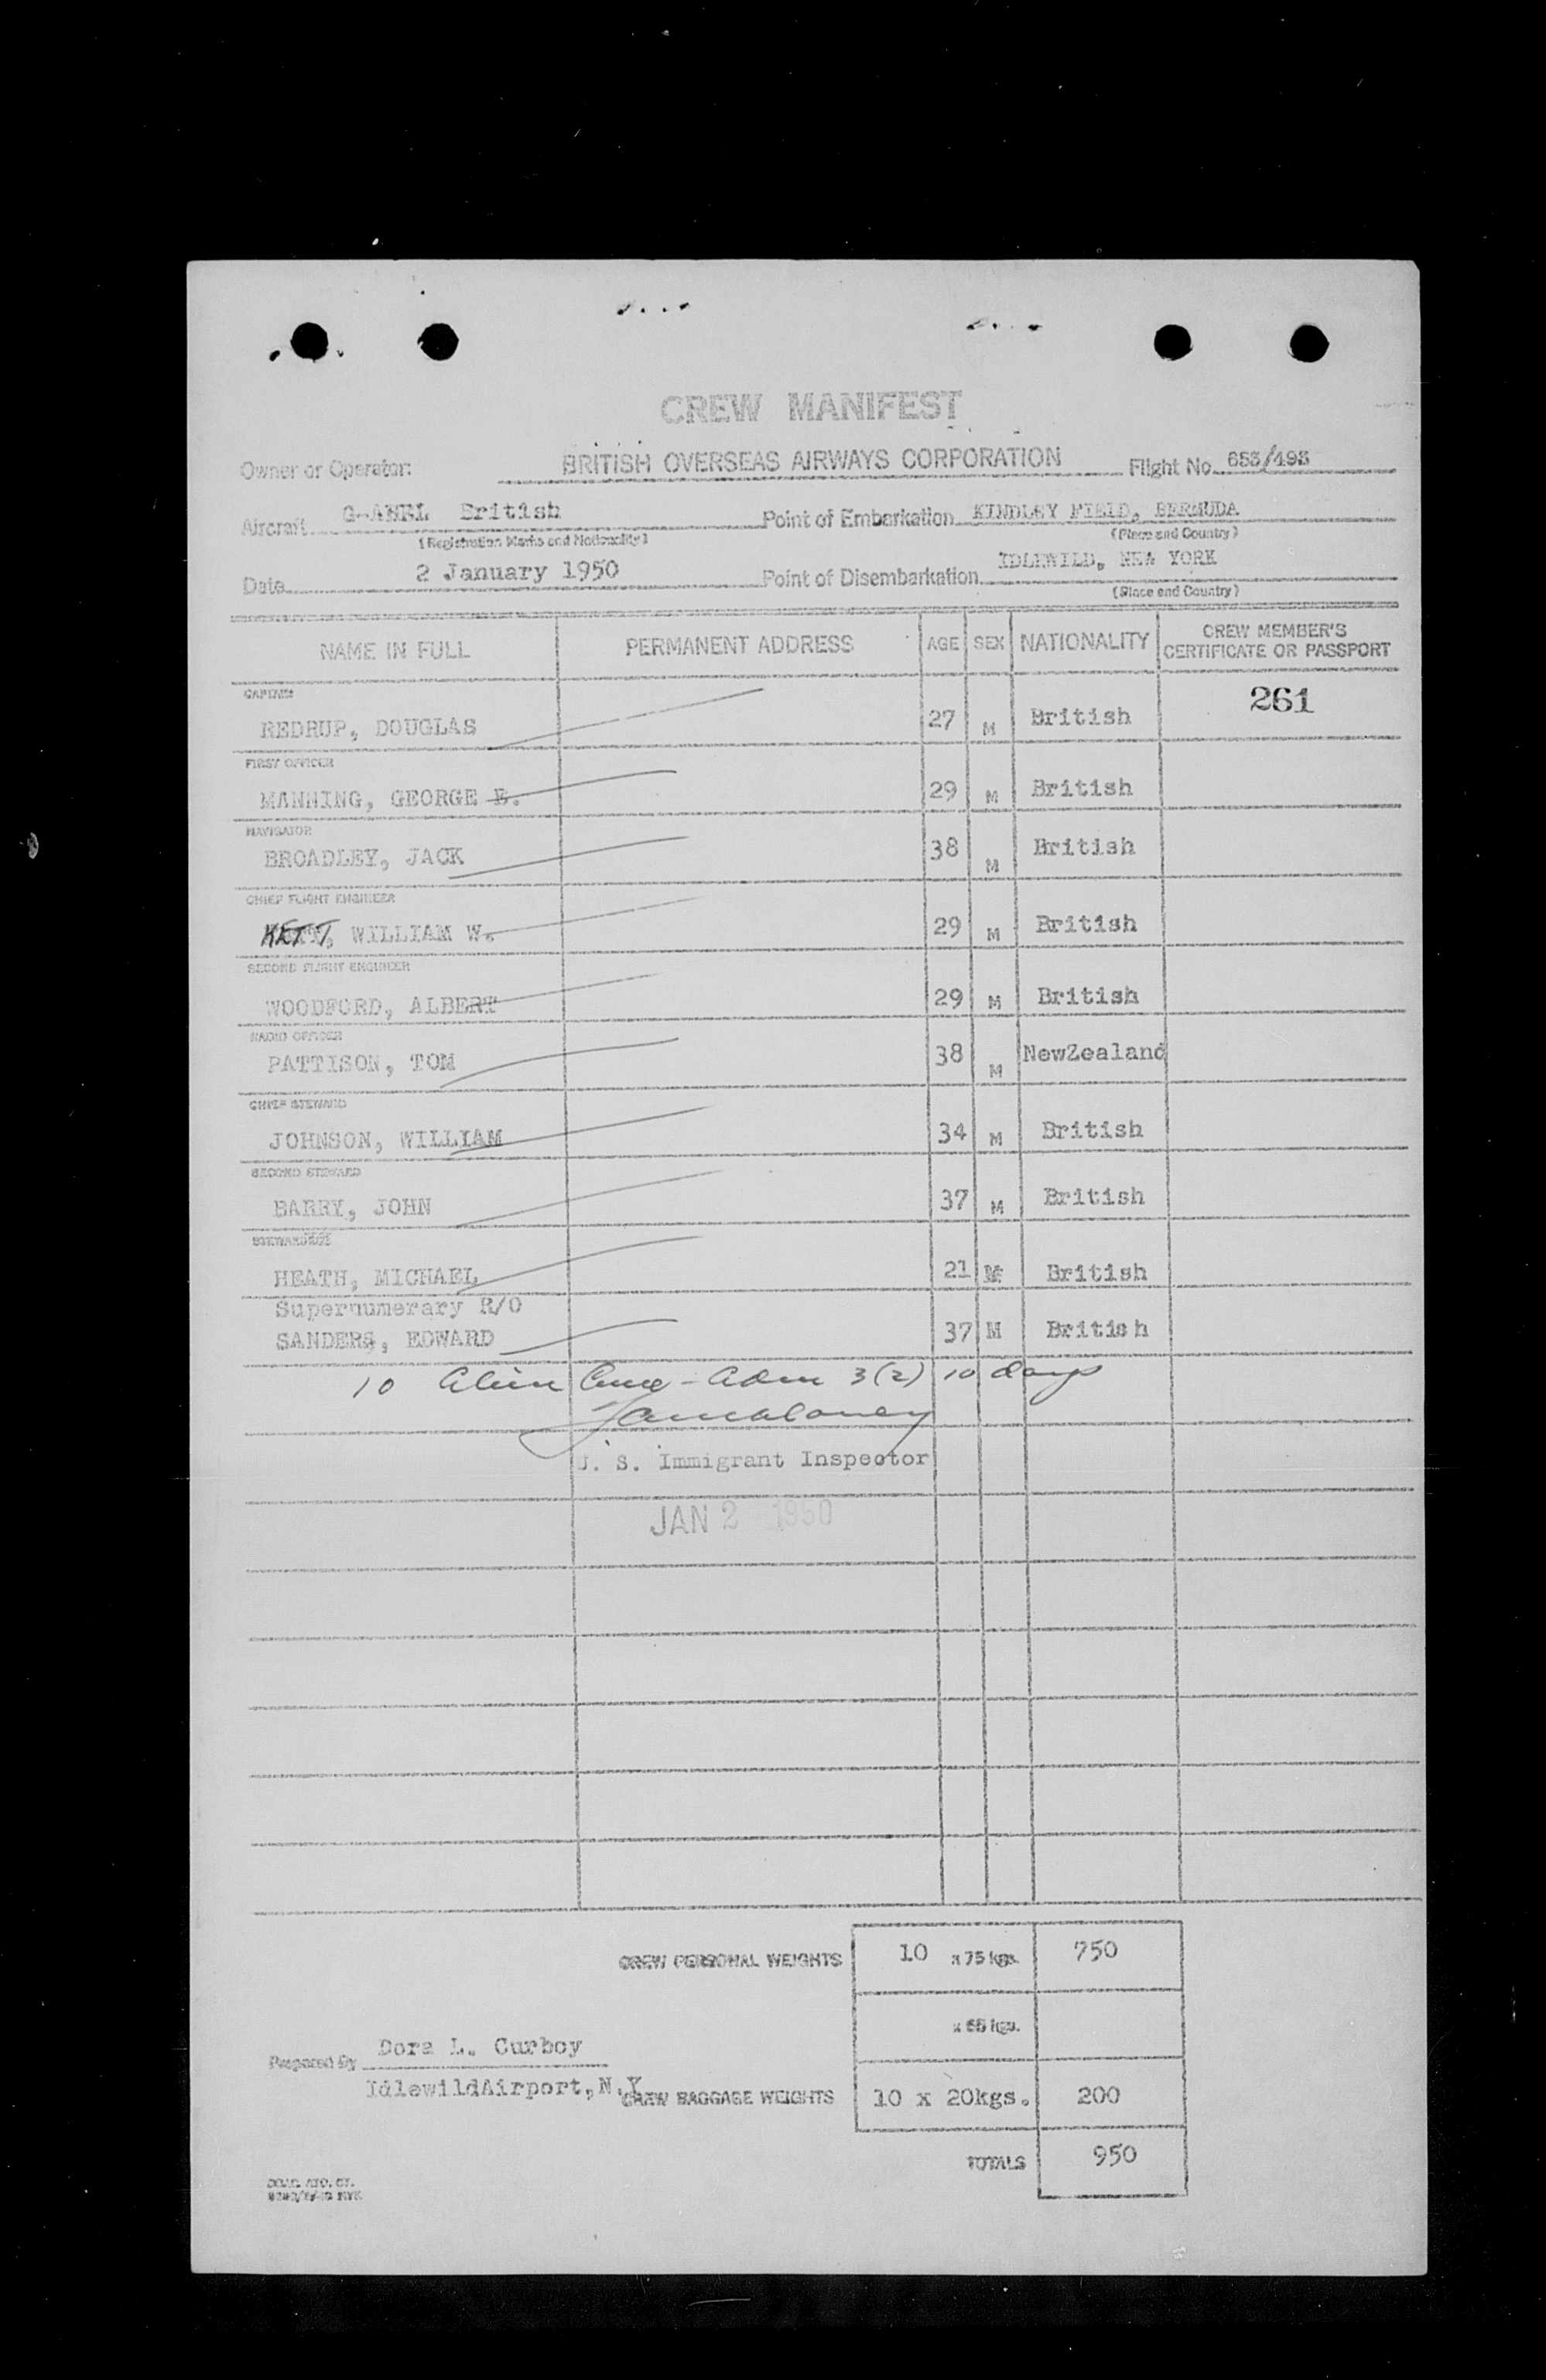 CREW MANIFEST
Owner or Operator: BRITISH OVERSEAS AIRWAYS CORPORATION Flight No. 653/493
Aircraft British Point of Embarkation KINDLEY FIELD, BERMUDA
(Registration Marks and Nationality) (Place and Country)
Date 2 January 1950 Point of Disembarkation IDLEWILD, NEW YORK
(Place and Country)
NAME IN FULL PERMANENT ADDRESS AGE SEX NATIONALITY CREW MEMBER'S CERTIFICATE OR PASSPORT
CAPTAIN 261
REDRUP, DOUGLAS 27 M British
FIRST OFFICER
MANNING, GEORGE E. 29 M British
NAVIGATOR
BROADLEY, JACK 38 M British
CHIEF FLIGHT ENGINEER
KETT, WILLIAM W. 29 M British
SECOND FLIGHT ENGINEER
WOODFORD, ALBERT 29 M British
RADIO OFFICER
PATTISON, TOM 38 M NewZealand
CHIEF STEWARD
JOHNSON, WILLIAM 34 M British
SECOND STEWARD
BARRY, JOHN 37 M British
HEATH, MICHAEL 21 M British
Supernumerary R/O
SANDERS, EDWARD 37 M British
10 Alien Crew - Adm 3(2) 10 days
U. S. Immigrant Inspector
JAN 2 1950
CREW PERSONAL WEIGHTS 10 x 75 kgs. 750
x 65 kgs.
Prepared By Dora L. Curboy
IdlewildAirport, N.Y.
CREW BAGGAGE WEIGHTS 10 x 20kgs. 200
TOTALS 950